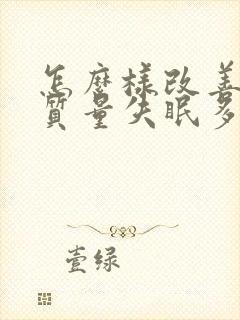 怎麼樣改善
質量失眠多
壹绿